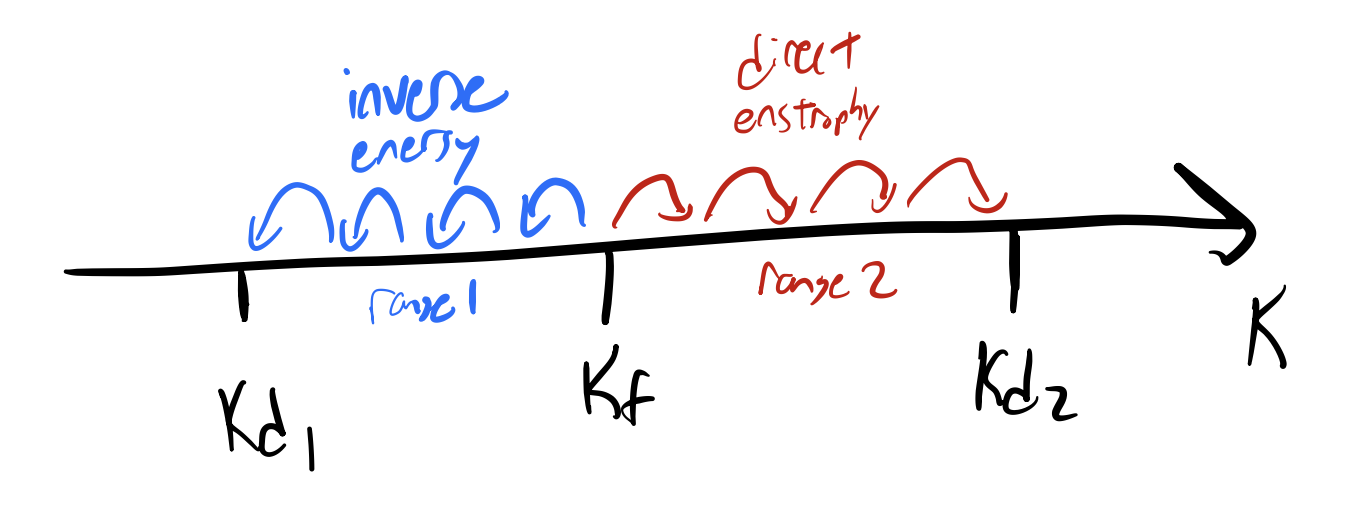 inverse
energy
direct
enstrophy
range 1
range 2
K
Kd1
Kf
Kd2